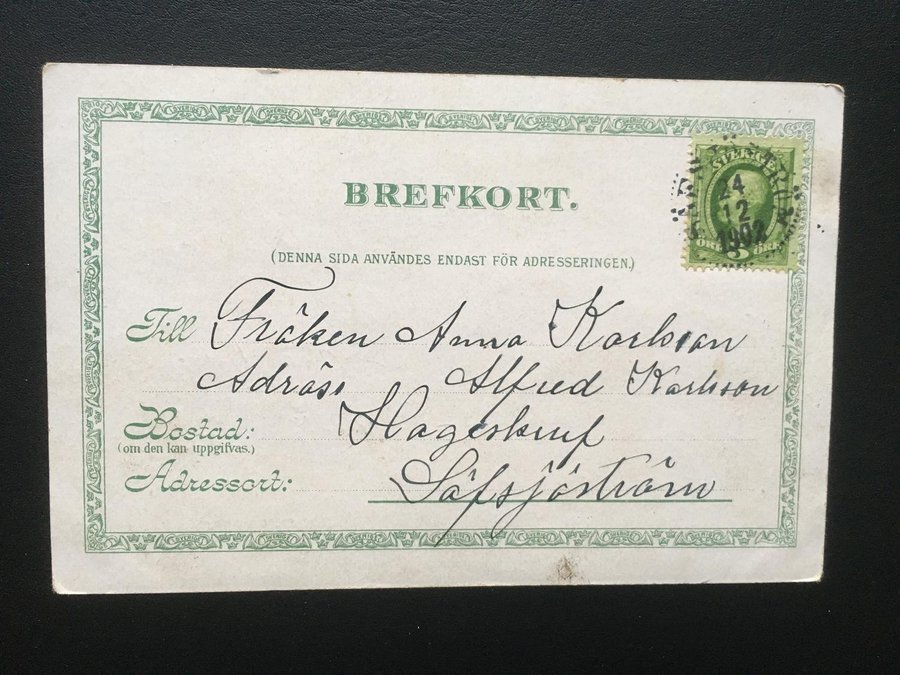 BREFKORT.
SVERIGE
24
12
1902
5
ÖRE ÖRE
(DENNA SIDA ANVÄNDES ENDAST FÖR ADRESSERINGEN.)
Till Fröken Anna Karlsson
Adräss Alfred Karlsson
Bostad: Hageskruf
(om den kan uppgifvas.)
Adressort: Säfsjöström